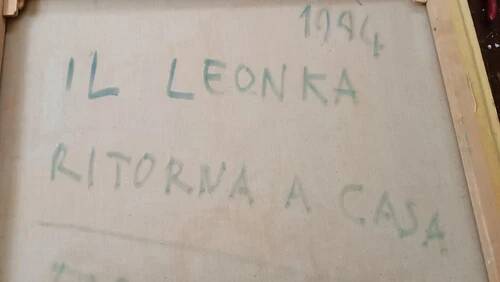 1994
IL LEONKA
RITORNA A CASA